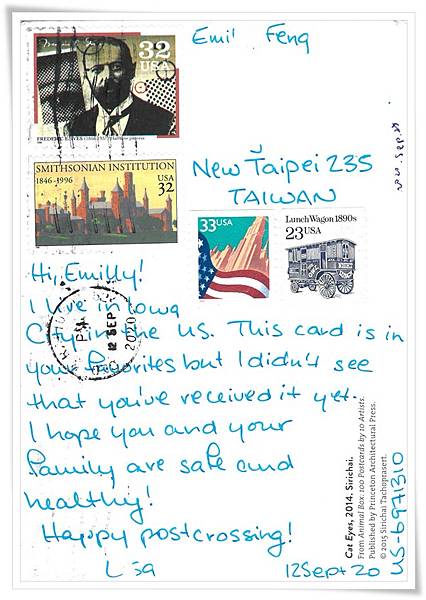 Emil Feng
New Taipei 235
TAIWAN
32
USA
SMITHSONIAN INSTITUTION
1846-1996
USA
32
33USA
Lunch Wagon 1890s
23 USA
12 SEP
2020
Hi, Emilly!
I live in Iowa
City in the US. This card is in
your favorites but I didn't see
that you've received it yet.
I hope you and your
family are safe and
healthy!
Happy postcrossing!
Lisa
12Sept 20
US-6971310
Cat Eyes, 2014. Sirichai.
From Animal Box: 100 Postcards by 10 Artists.
Published by Princeton Architectural Press.
© 2015 Sirichai Tachoprasert.